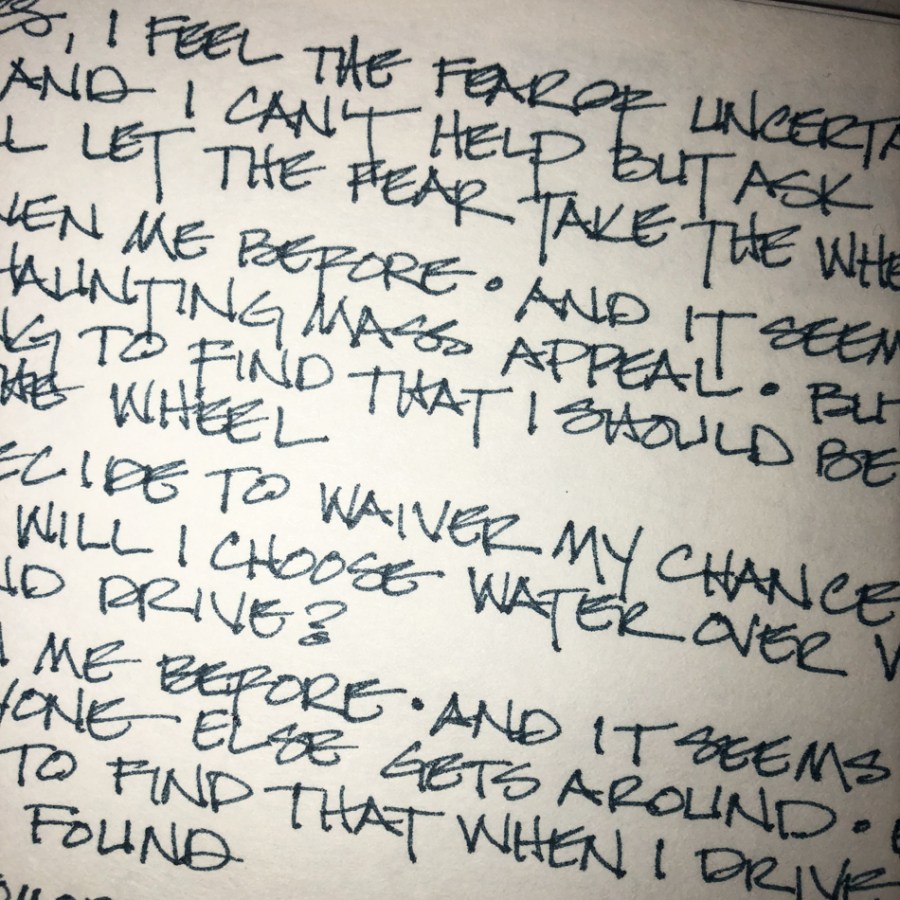 ES, I FEEL THE FEAR OF UNCERTA
AND I CAN'T HELD BUT ASK
L LET THE FEAR TAKE THE WHE
VEN ME BEFORE. AND IT SEEM
HAUNTING MASS APPEAL. BUT
NG TO FIND THAT I SHOULD BE
THE WHEEL
ECIDE TO WAIVER MY CHANCE
WILL I CHOOSE WATER OVER W
ND DRIVE?
N ME BEFORE. AND IT SEEMS
YONE ELSE GETS AROUND.
TO FIND THAT WHEN I DRIVE
FOUND